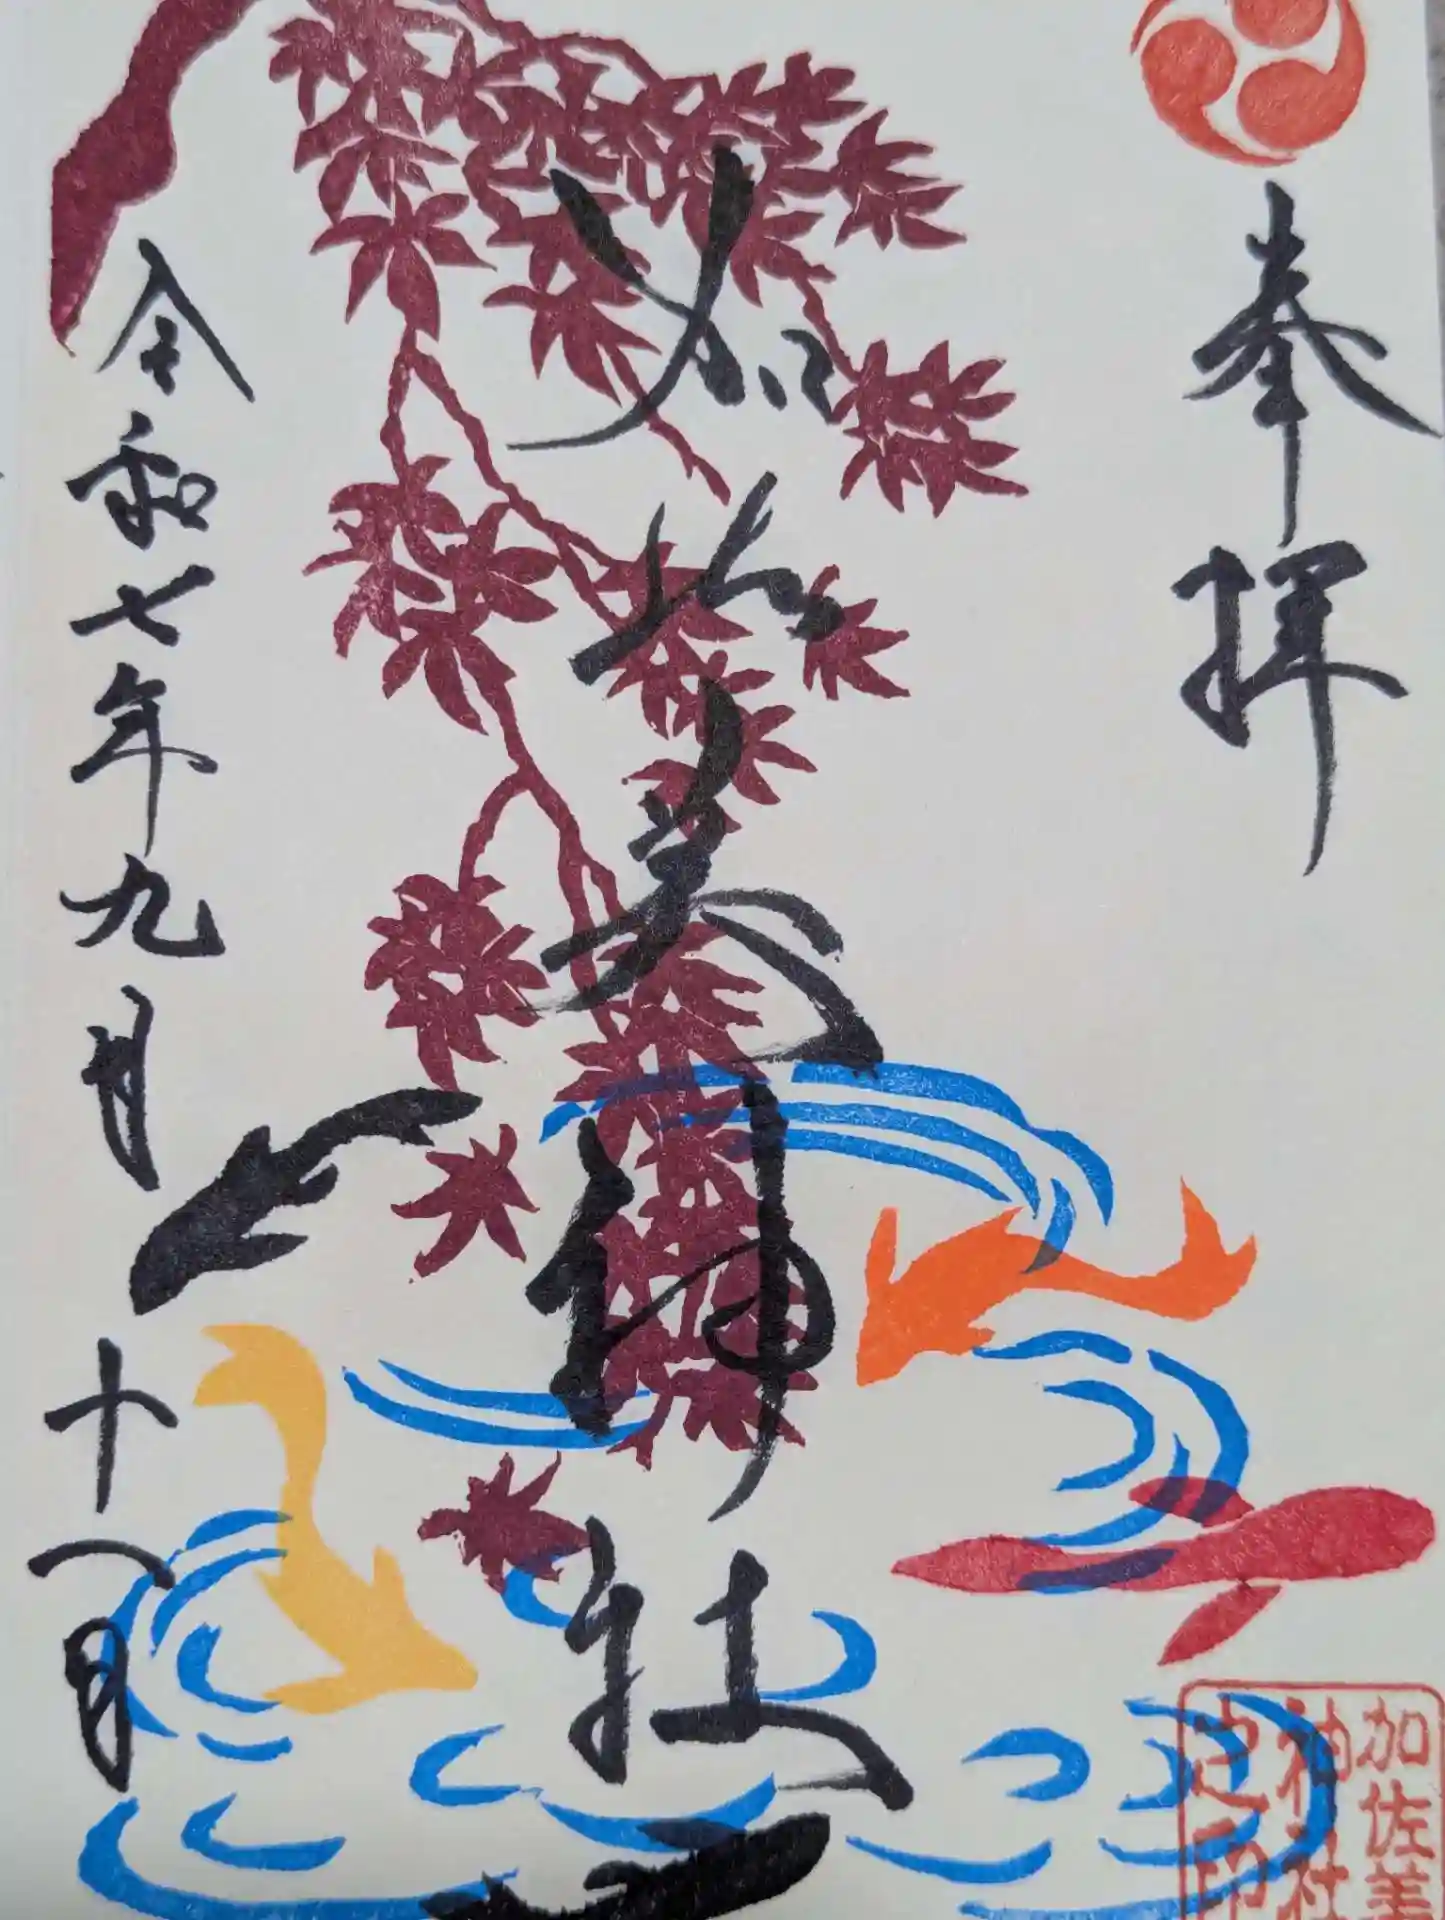 奉拝
加佐美神社
令和七年九月十八日
加佐美
神社
之印